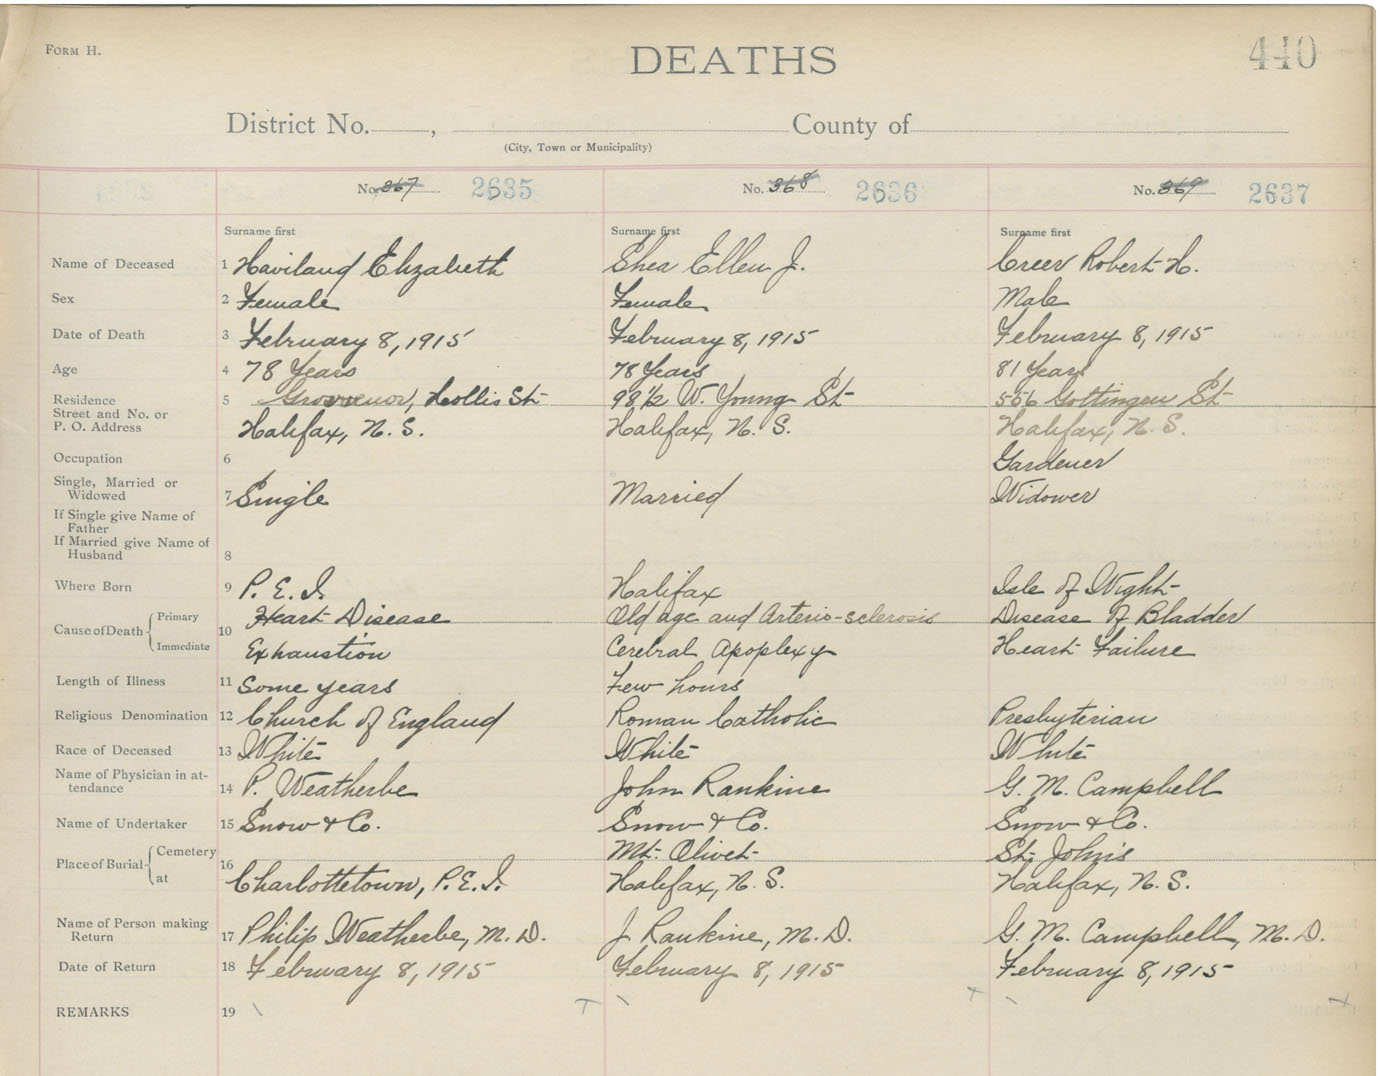 FORM H.
DEATHS
440
District No. , County of
(City, Town or Municipality)
No. 367 2635 No. 368 2636 No. 369 2637
Surname first Surname first Surname first
Name of Deceased 1 Haviland Elizabeth Shea Ellen J. Creer Robert H.
Sex 2 Female Female Male
Date of Death 3 February 8, 1915 February 8, 1915 February 8, 1915
Age 4 78 Years 78 Years 81 Years
Residence 5 Grosvenor, Hollis St 98½ W. Young St 556 Gottingen St
Street and No. or
P. O. Address Halifax, N. S. Halifax, N. S. Halifax, N. S.
Occupation 6 Gardener
Single, Married or
Widowed 7 Single Married Widower
If Single give Name of
Father
If Married give Name of
Husband 8
Where Born 9 P. E. I. Halifax Isle of Wight
Cause of Death 10 Primary Heart Disease Old age and Arterio-sclerosis Disease of Bladder
Immediate Exhaustion Cerebral Apoplexy Heart Failure
Length of Illness 11 Some years Few hours
Religious Denomination 12 Church of England Roman Catholic Presbyterian
Race of Deceased 13 White White White
Name of Physician in at-
tendance 14 P. Weatherbe John Rankine G. M. Campbell
Name of Undertaker 15 Snow & Co. Snow & Co. Snow & Co.
Place of Burial 16 Cemetery Mt. Olivet St. John's
at Charlottetown, P. E. I. Halifax, N. S. Halifax, N. S.
Name of Person making
Return 17 Philip Weatherbe, M. D. J Rankine, M. D. G. M. Campbell, M. D.
Date of Return 18 February 8, 1915 February 8, 1915 February 8, 1915
REMARKS 19